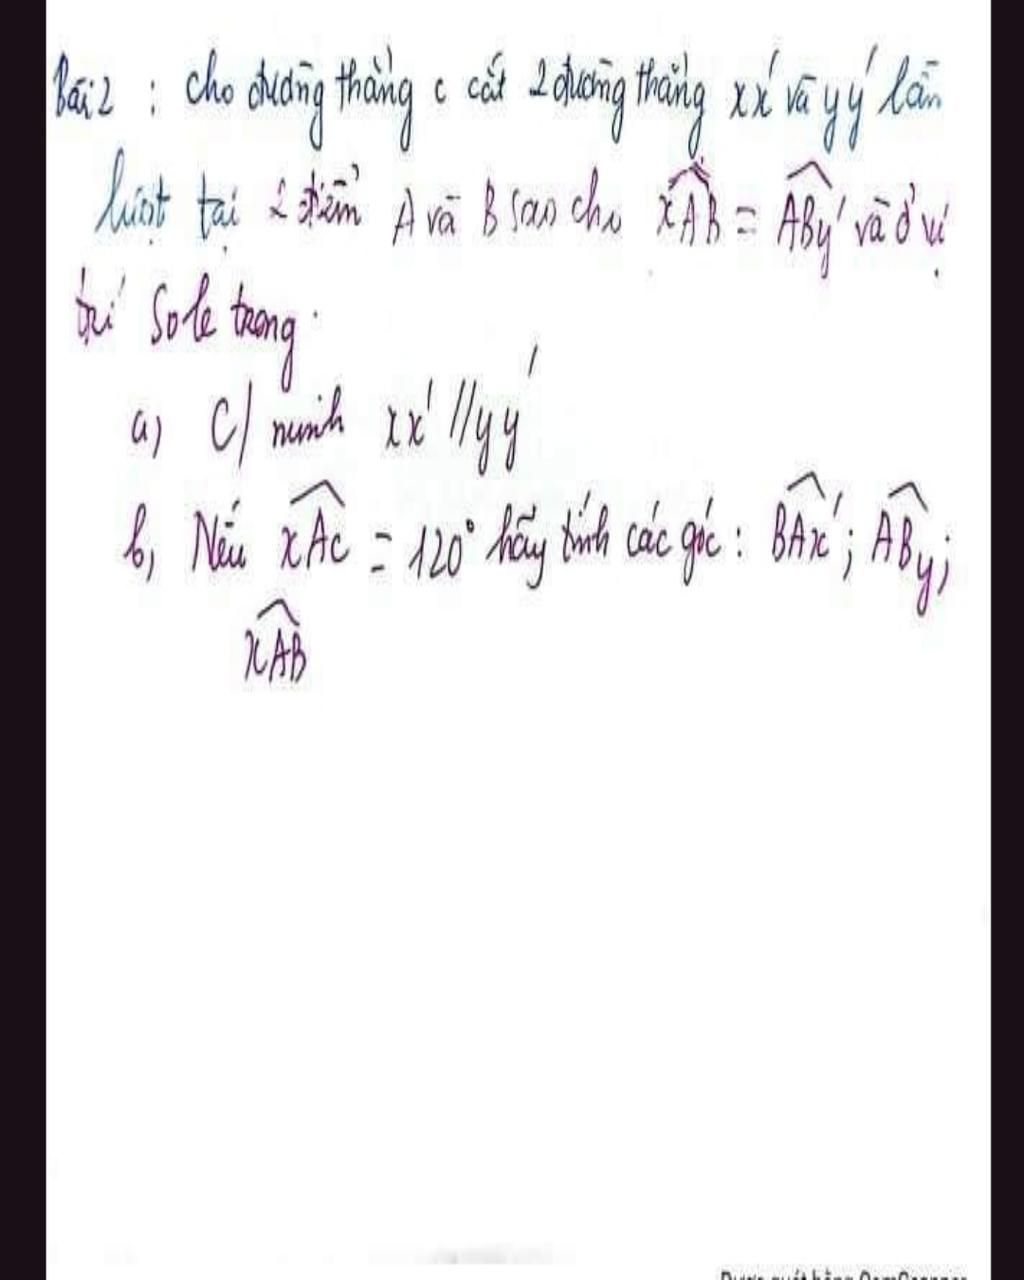 Bài 2 : Cho đường thẳng c cắt 2 đường thẳng xx' và yy' lần
lượt tại 2 điểm A và B sao cho xAB = ABy' và ở vị
trí Sole trong.
a, C/ minh xx' // yy'
b, Nếu xAc = 120° hãy tính các góc : BAx' ; ABy ;
xAB